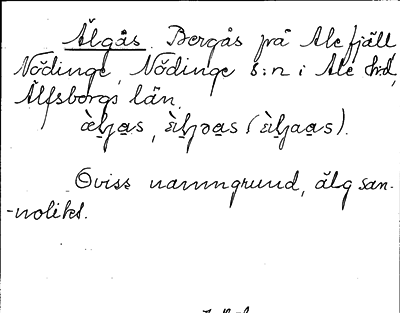 Älgås. Bergås på Ale fjäll
Nödinge, Nödinge s:n i Ale hrd,
Älfsborgs län.
Oviss namngrund, älg san-
-nolikt.